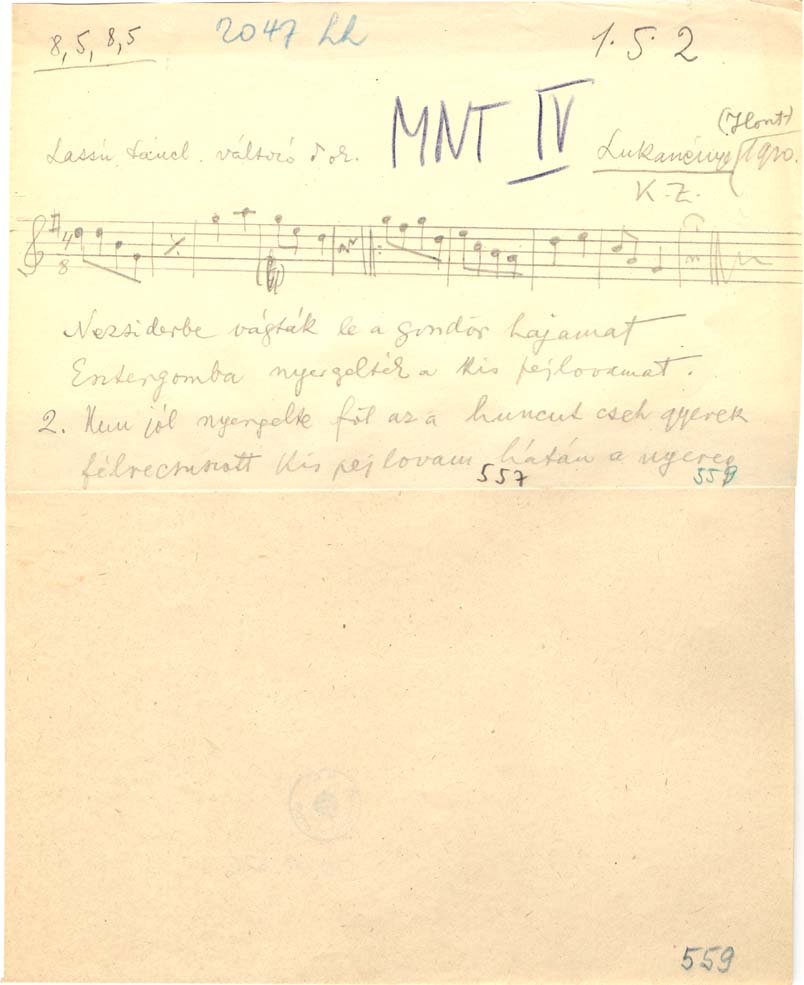 8, 5, 8, 5
2047 hh
1. 5. 2
MNT IV
(Hont)
Lassú táncl. változó
Lukanénye 1910.
K. Z.
II
4
8
Nezsiderbe vágták le a göndör hajamat
Esztergomba nyergelték a kis pejlovamat.
2. Nem jól nyergelte föl az a huncut cseh gyerek
félrecsúszott kis pejlovam hátán a nyereg
557
559